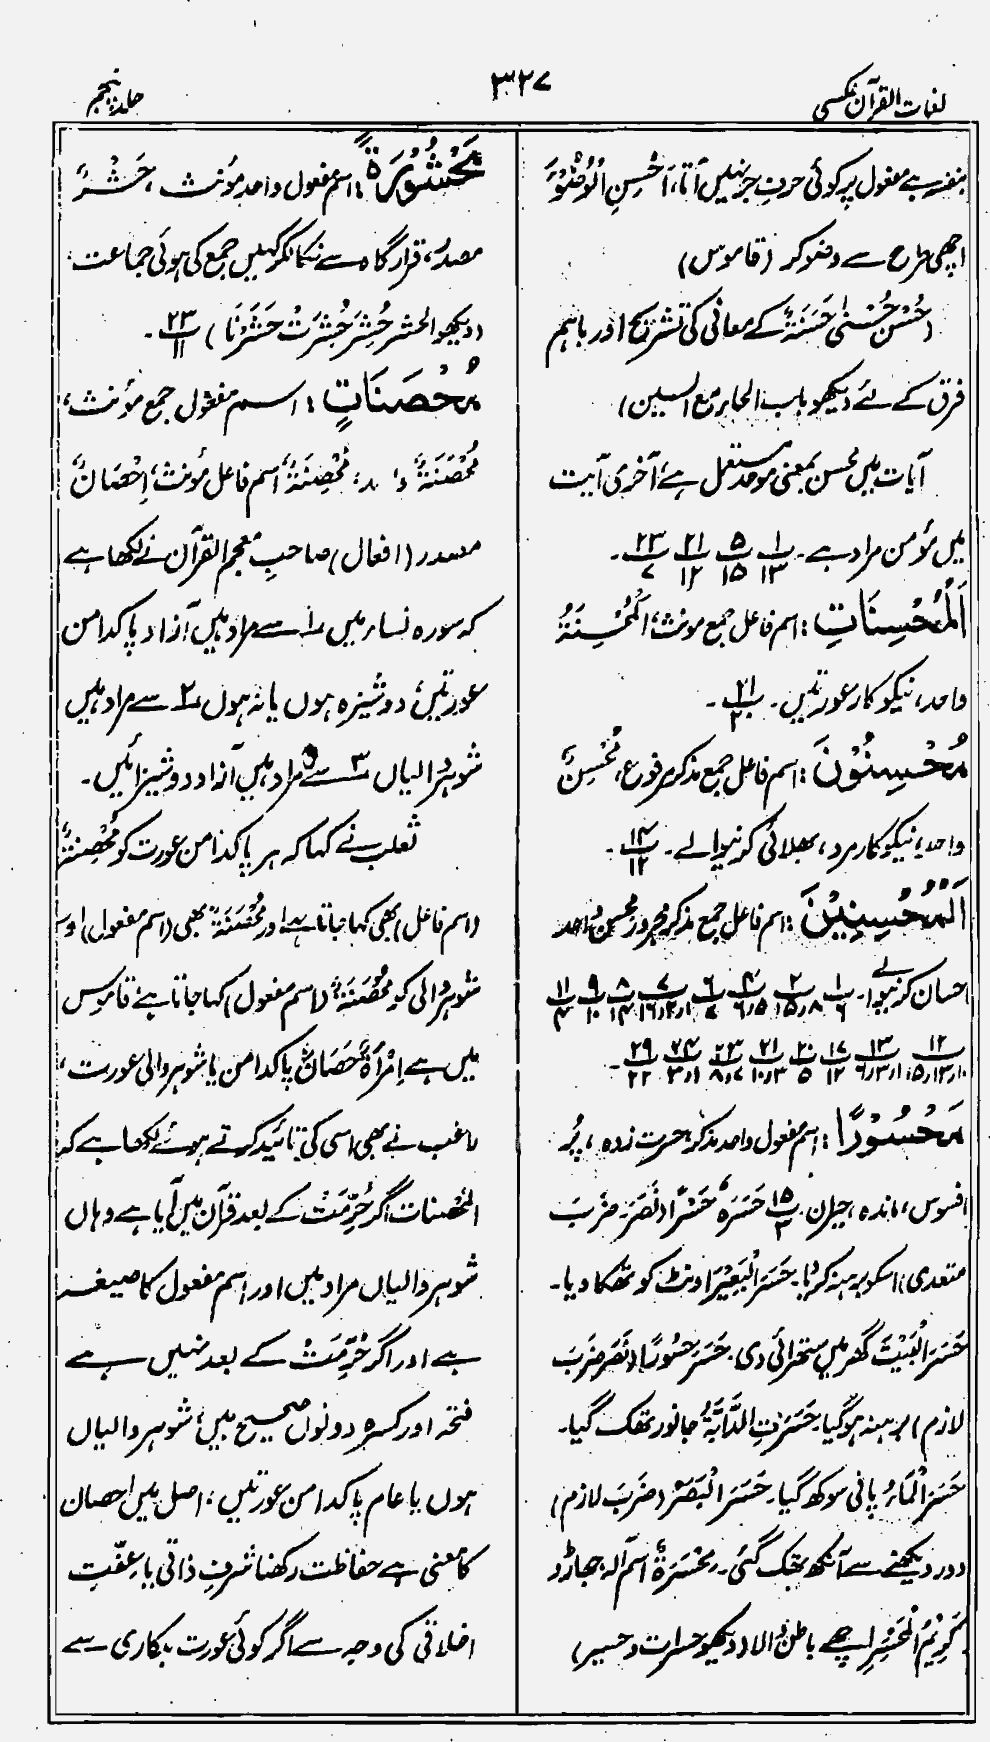 لغات القرآن عکسی
۳۲۷
جلد پنجم
بنفسہ ہے مفعول پر کوئی حرفِ جر نہیں آتا، اَحْسِنِ الْوُضُوْءَ
اچھی طرح سے وضو کر (قاموس)
(حُسْنٌ حُسْنٰی حَسَنَۃٌ کے معانی کی تشریح اور باہم
فرق کے لئے دیکھو باب الحاء مع السین)
آیات میں محسن بمعنی موحد مستعمل ہے، آخری آیت
میں مؤمن مراد ہے۔ ۱/۱۳ ۵/۱۵ ۲۱/۱۲ ۲۳/۷ ۔
اَلْمُحْسِنَاتِ: اسم فاعل جمع مونث، اَلْمُحْسِنَۃُ
واحد، نیکو کار عورتیں۔ ۲۱/۲۰ ۔
مُحْسِنُوْنَ: اسم فاعل جمع مذکر مرفوع، مُحْسِنٌ
واحد، نیکو کار مرد، بھلائی کرنیوالے۔ ۱۴/۱۲ ۔
اَلْمُحْسِنِیْنَ: اسم فاعل جمع مذکر مجرور محسن واحد
احسان کرنیوالے۔ ۱/۶ ۲/۸،۱۵ ۴/۵،۶ ۶/۷ ۷/۱،۲،۱۶ ۸/۱۴ ۹/۱۰ ۱۱/۴
۱۲/۱۰،۱۳،۱۵ ۱۳/۱،۳،۶ ۱۷/۱۲ ۲۰/۵ ۲۱/۳،۱۰ ۲۳/۷،۸ ۲۴/۱،۳ ۲۹/۲۲ ۔
مَحْسُوْرًا: اسم مفعول واحد مذکر، حسرت زدہ، پُر
افسوس، ماندہ، حیران۔ ۱۵/۳ حَسَرَہٗ حَسْرًا (نَصَرَ۔ ضَرَبَ
متعدی) اسکو برہنہ کر دیا۔ حَسَرَ الْبَعِیْرَ اونٹ کو تھکا دیا۔
حَسَرَ الْبَیْتَ گھر میں ستھرائی دی۔ حَسَرَ حُسُوْرًا (نَصَرَ ضَرَبَ
لازم) برہنہ ہوگیا۔ حَسَرَتِ الدَّابَّۃُ جانور تھک گیا۔
حَسَرَ الْمَاءُ پانی سوکھ گیا۔ حَسَرَ الْبَصَرُ (ضَرَبَ لازم)
دور دیکھنے سے آنکھ تھک گئی۔ مِحْسَرَۃٌ اسم آلہ جھاڑو
کَرِیْمُ الْمَحْسَرِ اچھے باطن والا (دیکھو حسرات و حسیر)
مَحْشُوْرَۃً: اسم مفعول واحد مؤنث، حَشْرٌ
مصدر، قرار گاہ سے نکالکر کہیں جمع کی ہوئی جماعت
(دیکھو الحشر حُشِرَ حُشِرَتْ حَشَرْنَا) ۲۳/۱۱ ۔
مُحْصَنَاتٍ: اسم مفعول جمع مؤنث،
مُحْصَنَۃٌ واحد، مُحْصِنَۃٌ، اسم فاعل مؤنث، اِحْصَانٌ
مصدر (افعال) صاحبِ معجم القرآن نے لکھا ہے
کہ سورہ نساء میں ۱ سے مراد ہیں آزاد پاکدامن
عورتیں، دوشیزہ ہوں یا نہ ہوں ۲ سے مراد ہیں
شوہر والیاں ۳ سے مراد ہیں آزاد دوشیزائیں۔
ثعلب نے کہا کہ ہر پاکدامن عورت کو مُحْصِنَۃٌ
(اسم فاعل) بھی کہا جاتا ہے اور مُحْصَنَۃٌ بھی (اسم مفعول) اور
شوہر والی کو مُحْصَنَۃٌ (اسم مفعول) کہا جاتا ہے، قاموس
میں ہے اِمْرَأَۃٌ حَصَانٌ پاکدامن یا شوہر والی عورت،
راغب نے بھی اسی کی تائید کرتے ہوئے لکھا ہے کہ
المُحْصَنات اگر حُرِّمَتْ کے بعد قرآن میں آیا ہے وہاں
شوہر والیاں مراد ہیں اور اسم مفعول کا صیغہ
ہے اور اگر حُرِّمَتْ کے بعد نہیں ہے
فتحہ اور کسرہ دونوں صحیح ہیں، شوہر والیاں
ہوں یا عام پاکدامن عورتیں، اصل میں احصان
کا معنی ہے حفاظت رکھنا شرفِ ذاتی یا عِفّتِ
اخلاقی کی وجہ سے اگر کوئی عورت بدکاری سے